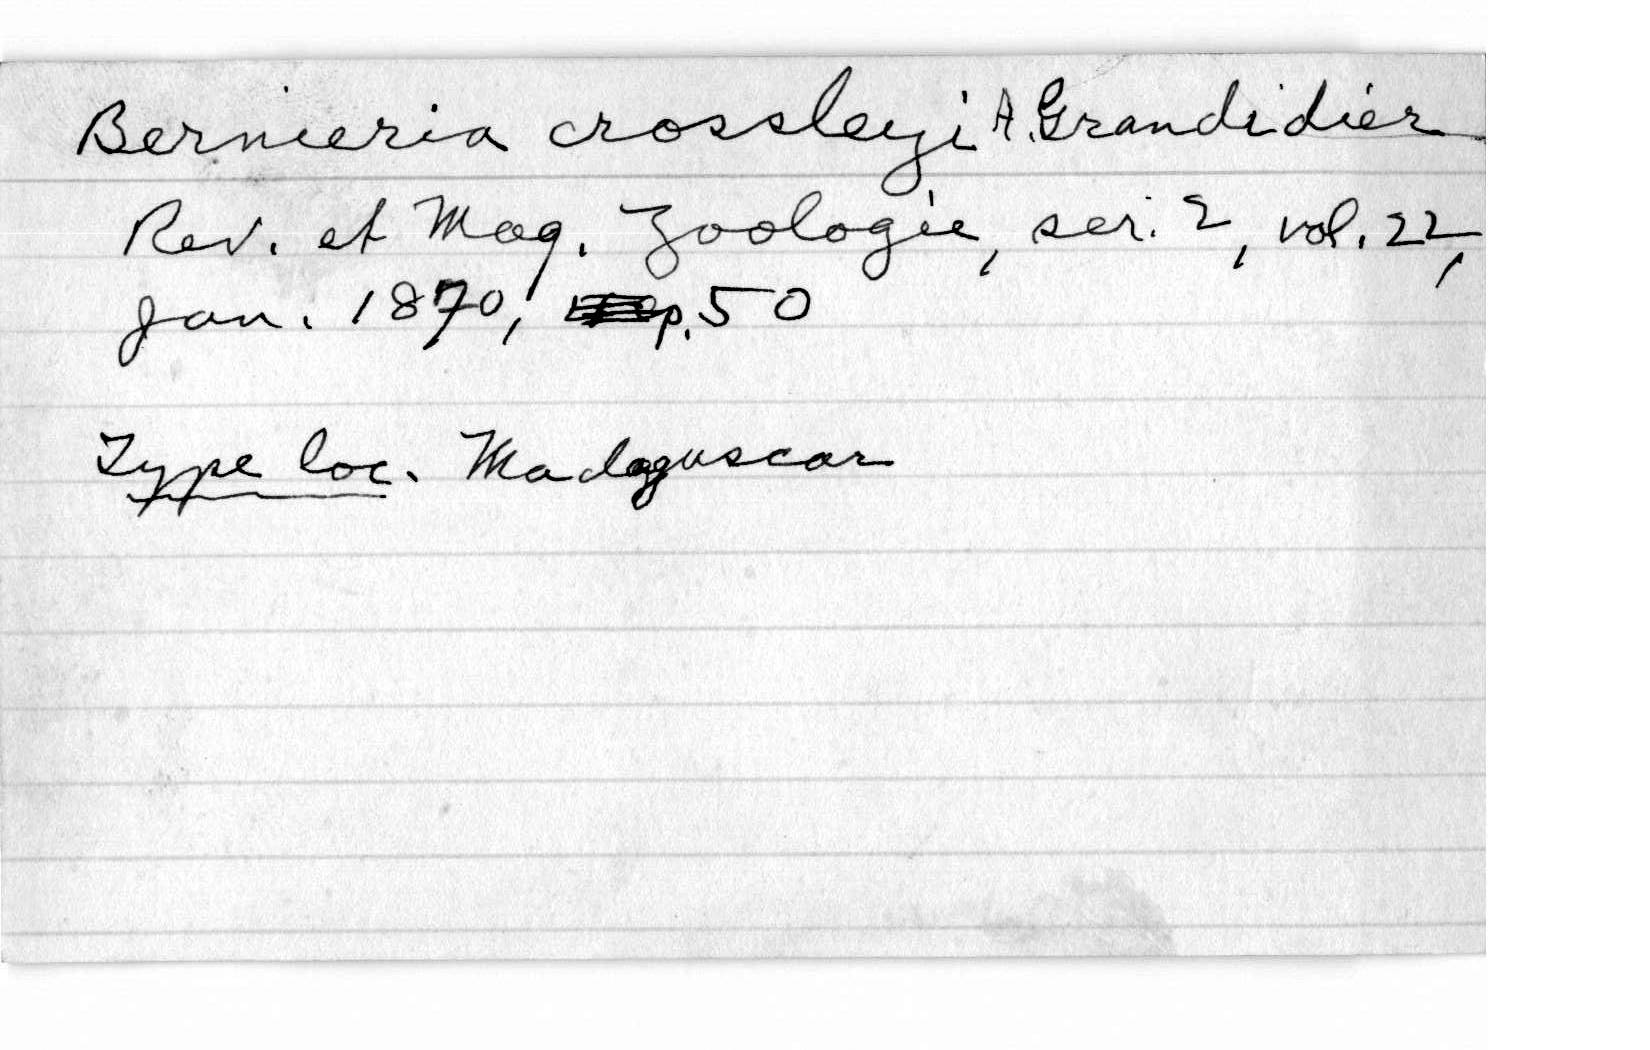 Bernieria crossleyi A. Grandidier
Rev. et Mag. Zoologie, ser. 2, vol. 22,
Jan. 1870, p. 50
Type loc. Madagascar